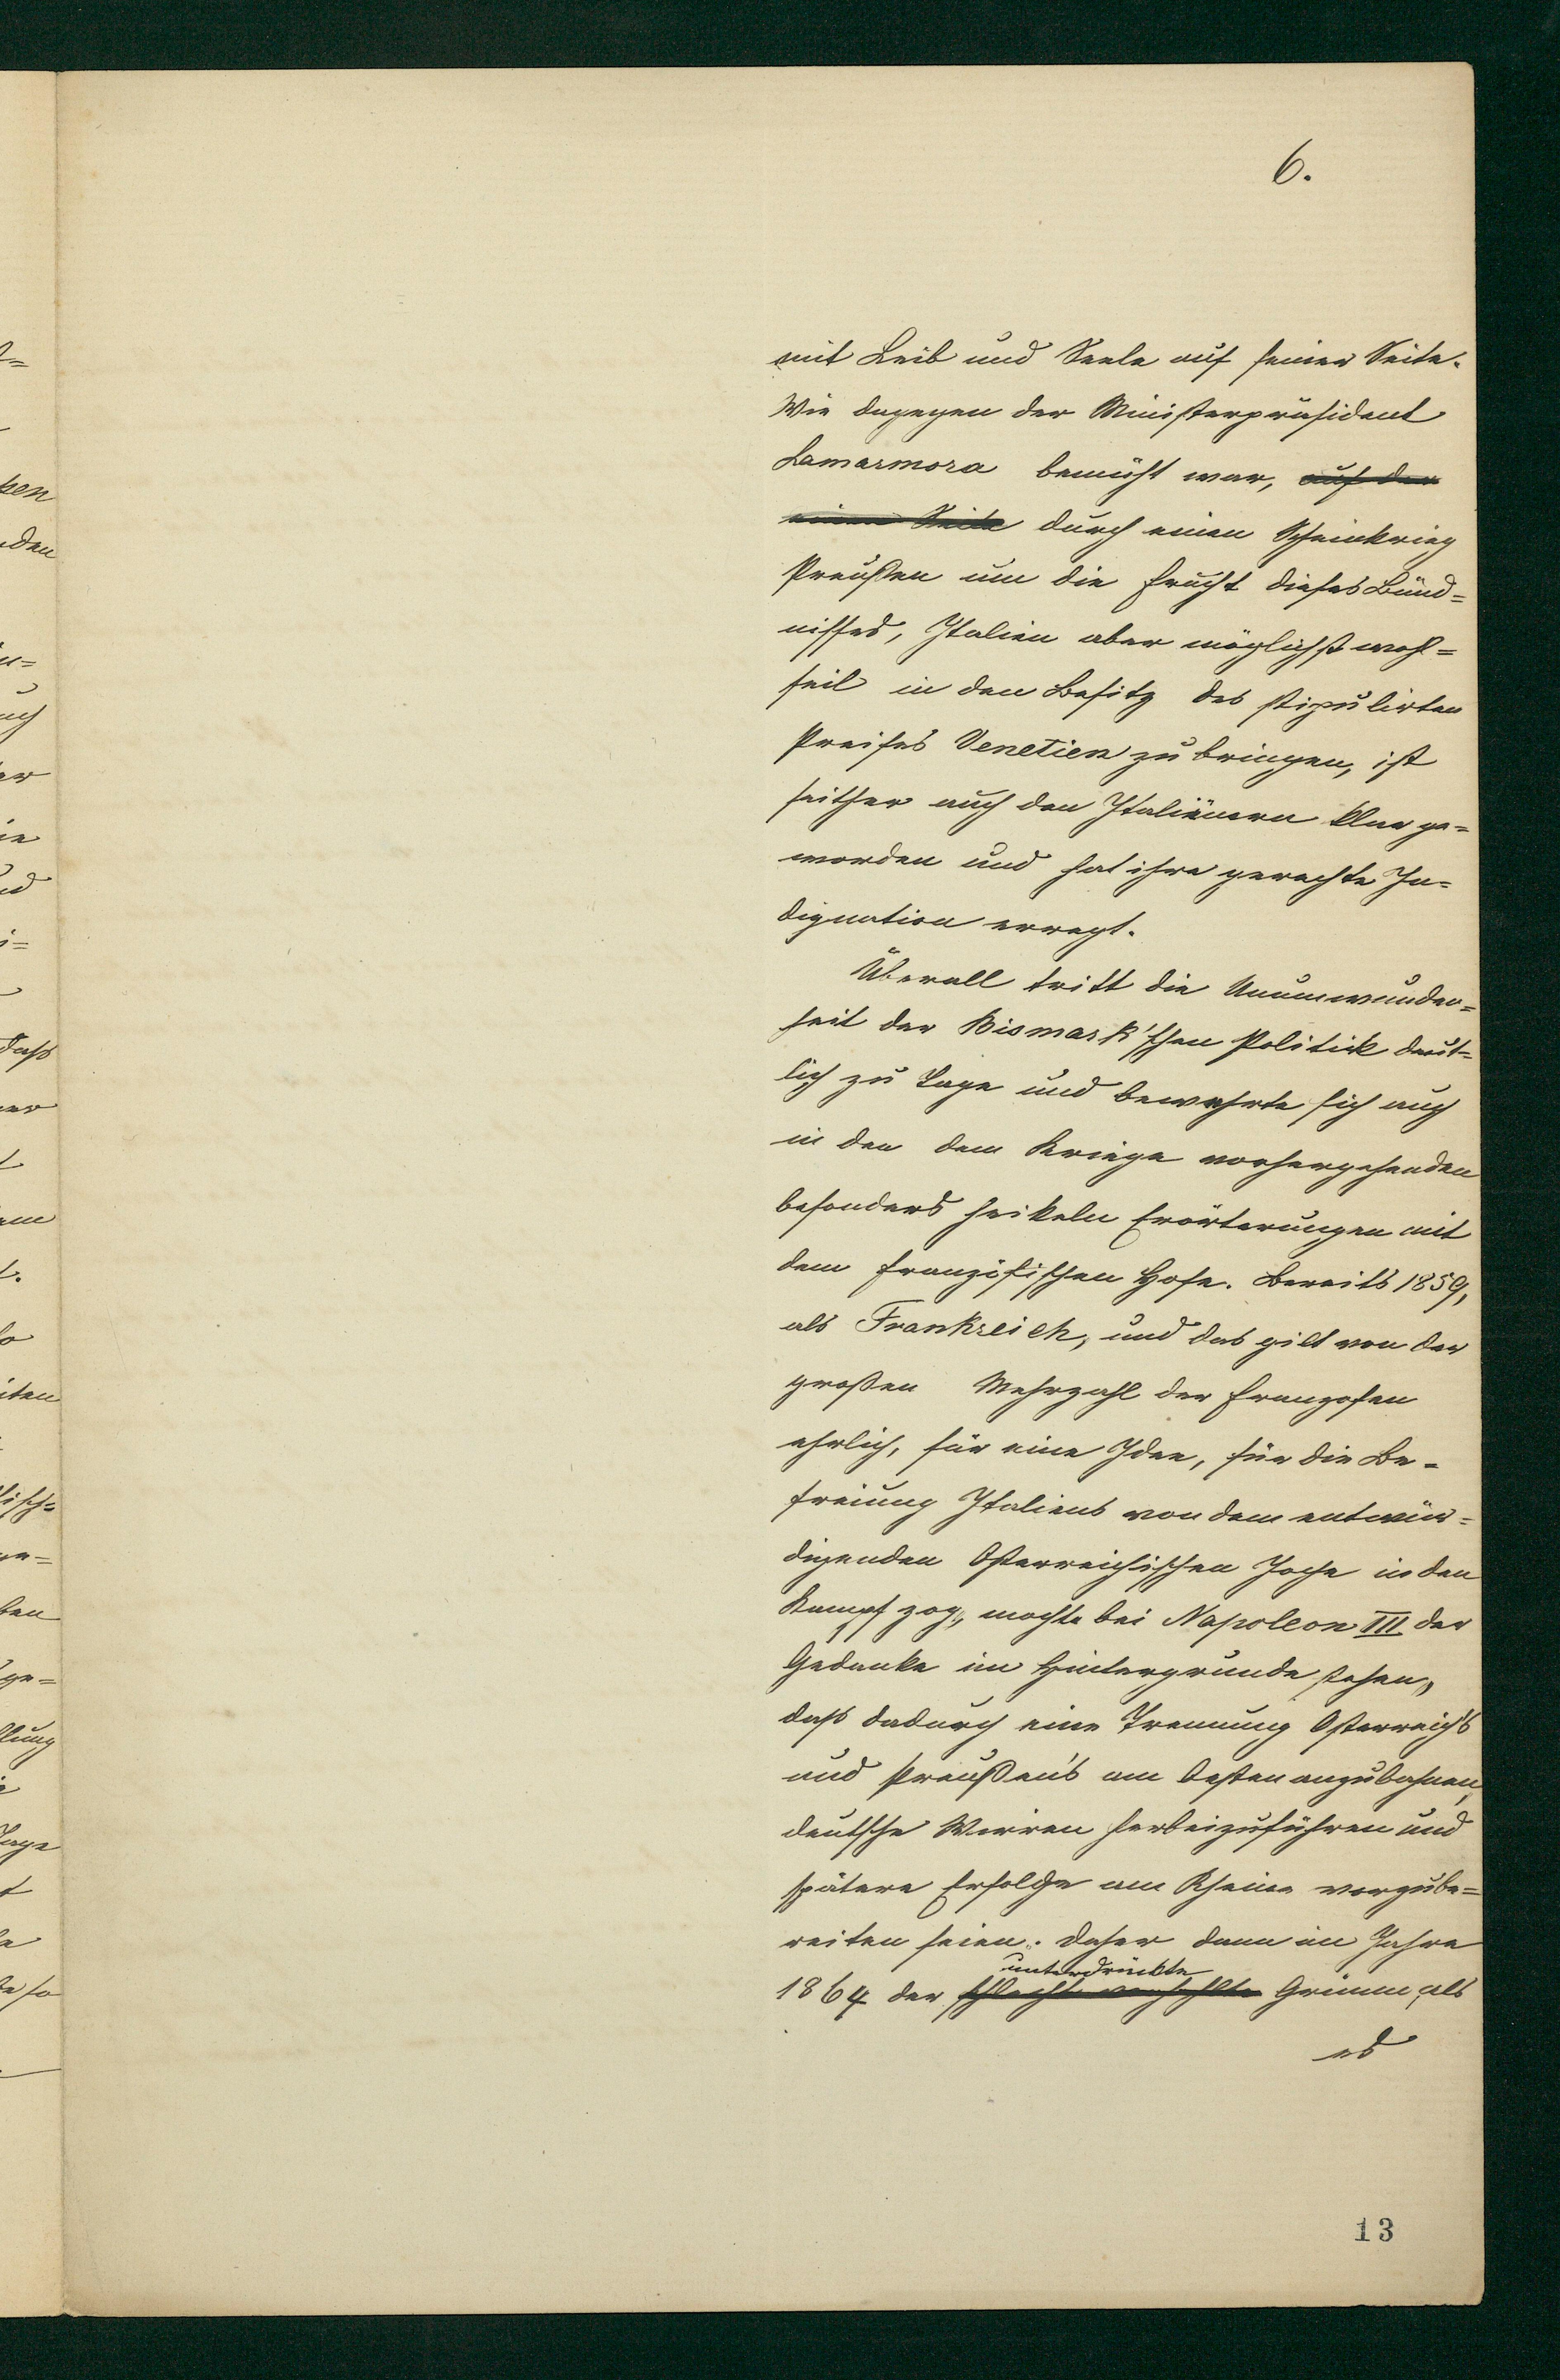 6.
mit Leib und Seele auf seiner Seite.
Wie dagegen der Ministerpräsident
Lamarmora bemüht war, auf der
einen Seite durch einen Scheinkrieg
Preußen um die Frucht dieses Bünd=
nisses, Italien aber möglichst wohl=
feil in den Besitz des stipulirten
Preises Venetien zu bringen, ist
seither auch den Italiänern klar ge=
worden und hat ihre gerechte In=
dignation erregt.
Überall tritt die Unumwunden=
heit der Bismark'schen Politick deut=
lich zu Tage und bewahrte sich auch
in den dem Kriege vorhergehenden
besonders heikeln Erörterungen mit
dem französischen Hofe. Bereits 1859,
als Frankreich, und das gilt von der
großen Mehrzahl der Franzosen
ehrlich, für eine Idee, für die Be=
freiung Italiens von dem entwür=
digenden Österreichischen Joche in den
Kampf zog, mochte bei Napoleon III der
Gedanke im Hintergrunde stehen,
daß dadurch eine Trennung Österreich's
und Preußen's am besten anzubahnen,
deutsche Wirren herbeizuführen und
spätere Erfolge am Rheine vorzube=
reiten seien. Daher denn im Jahre
unterdrückte
1864 der schlecht verhehlte Grimm, als
es
13
ken
den
uch
er
ie
nd
daß
er
em
so
iten
lisch=
ge=
ben
ge=
llung
Tage
te so